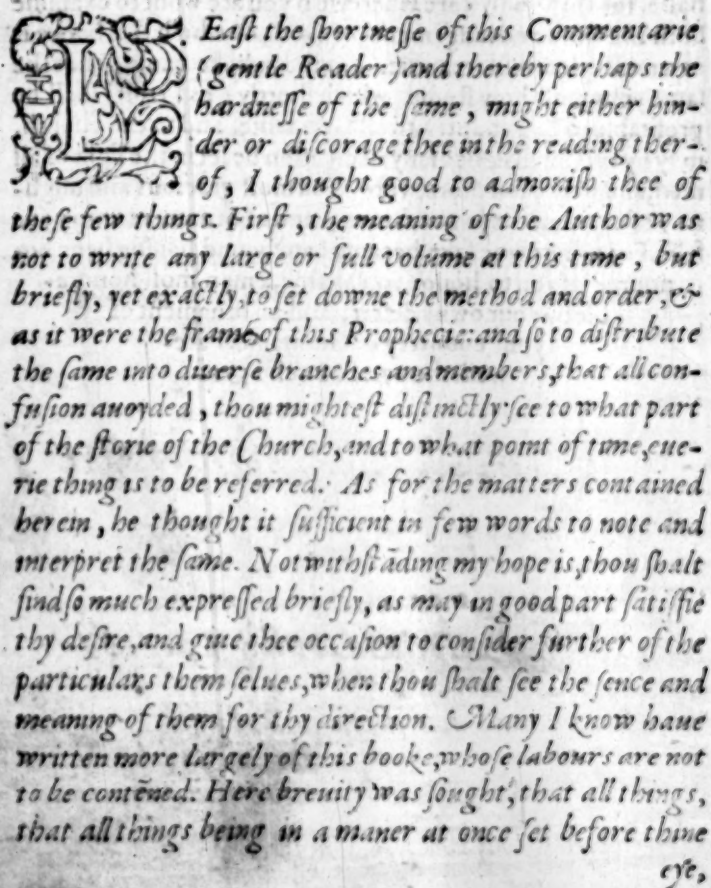 LEaſt the ſhortneſſe of this Commentarie
(gentle Reader) and thereby perhaps the
hardneſſe of the ſame, might either hin-
der or diſcorage thee in the reading ther-
of, I thought good to admoniſh thee of
theſe few things. Firſt, the meaning of the Author was
not to write any large or full volume at this time, but
briefly, yet exactly, to ſet downe the method and order, &
as it were the frame of this Prophecie: and ſo to diſtribute
the ſame into diuerſe branches and members, that all con-
fuſion auoyded, thou mighteſt diſtinctly ſee to what part
of the ſtorie of the Church, and to what point of time, eue-
rie thing is to be referred. As for the matters contained
herein, he thought it ſufficient in few words to note and
interpret the ſame. Notwithſtãding my hope is, thou ſhalt
find ſo much expreſſed briefly, as may in good part ſatiſfie
thy deſire, and giue thee occaſion to conſider further of the
particulars them ſelues, when thou ſhalt ſee the ſence and
meaning of them for thy direction. Many I know haue
written more largely of this booke, whoſe labours are not
to be contẽned. Here breuity was ſought, that all things,
that all things being in a maner at once ſet before thine
eye,